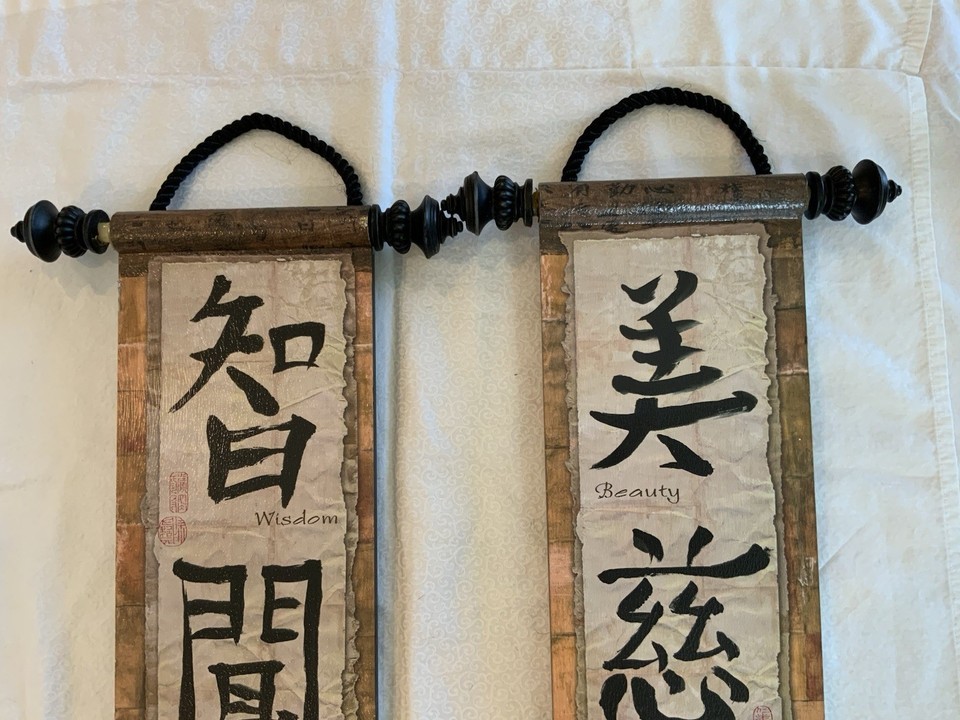 智
Wisdom
聞
美
Beauty
慈